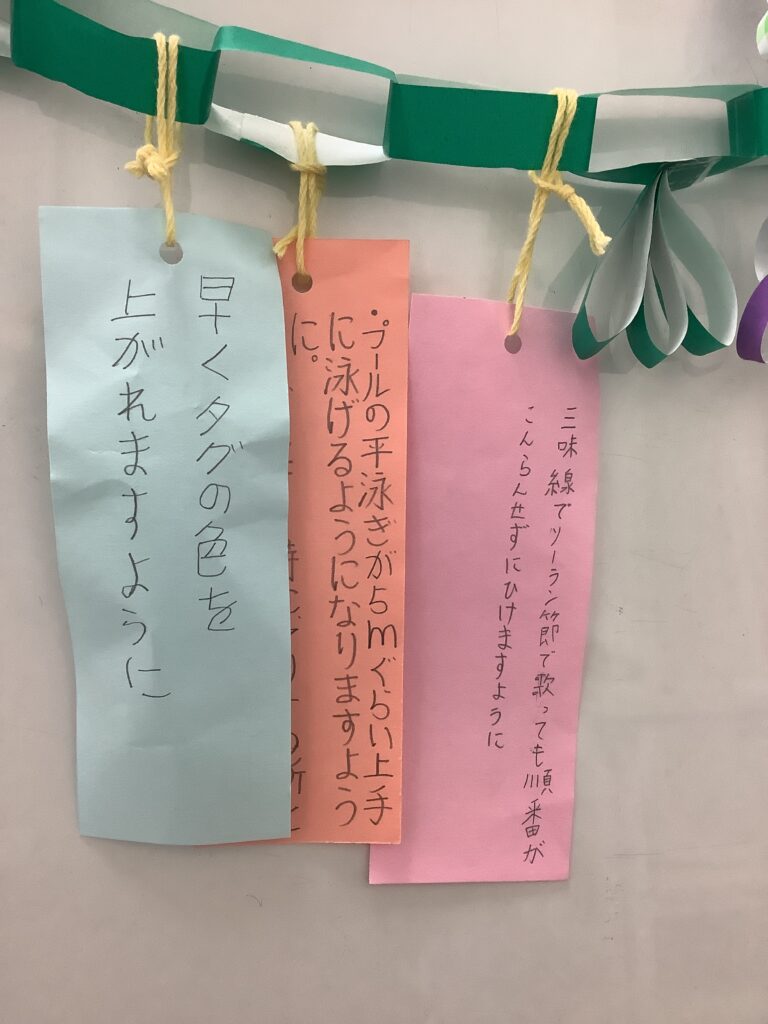 三味線でソーラン節で歌っても順番が
こんらんせずにひけますように
・プールの平泳ぎが5mぐらい上手
に泳げるようになりますよう
に。
早くタグの色を
上がれますように